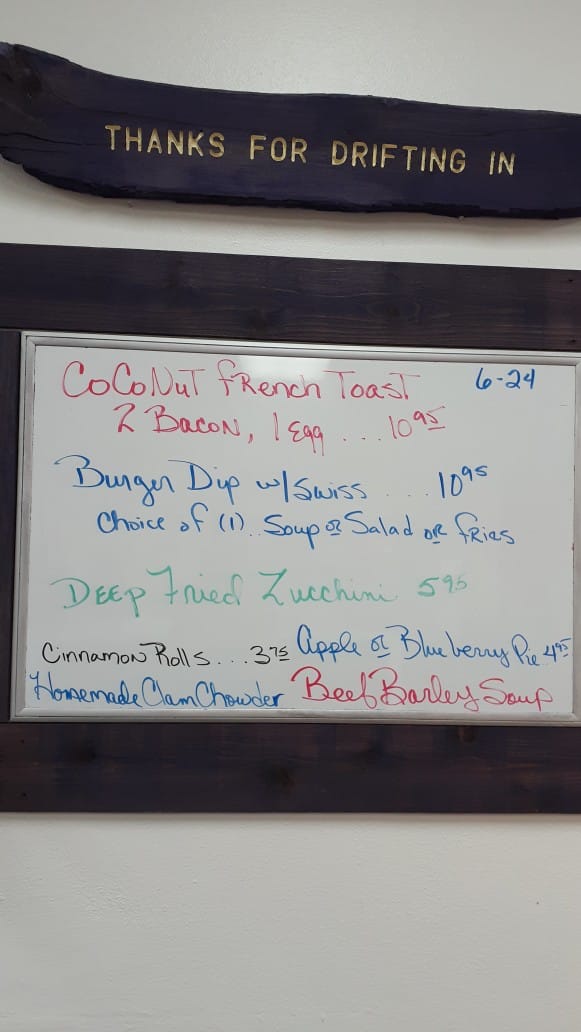 THANKS FOR DRIFTING IN
COCONUT FRENCH TOAST 6-24
2 BACON, 1 Egg ... 10 95
Burger Dip w/Swiss .... 10 95
Choice of (1).. Soup or Salad or fries
DEEP Fried Zucchini 5 95
Cinnamon Rolls ... 3 75 Apple or Blueberry Pie 4 95
Homemade Clam Chowder Beef Barley Soup